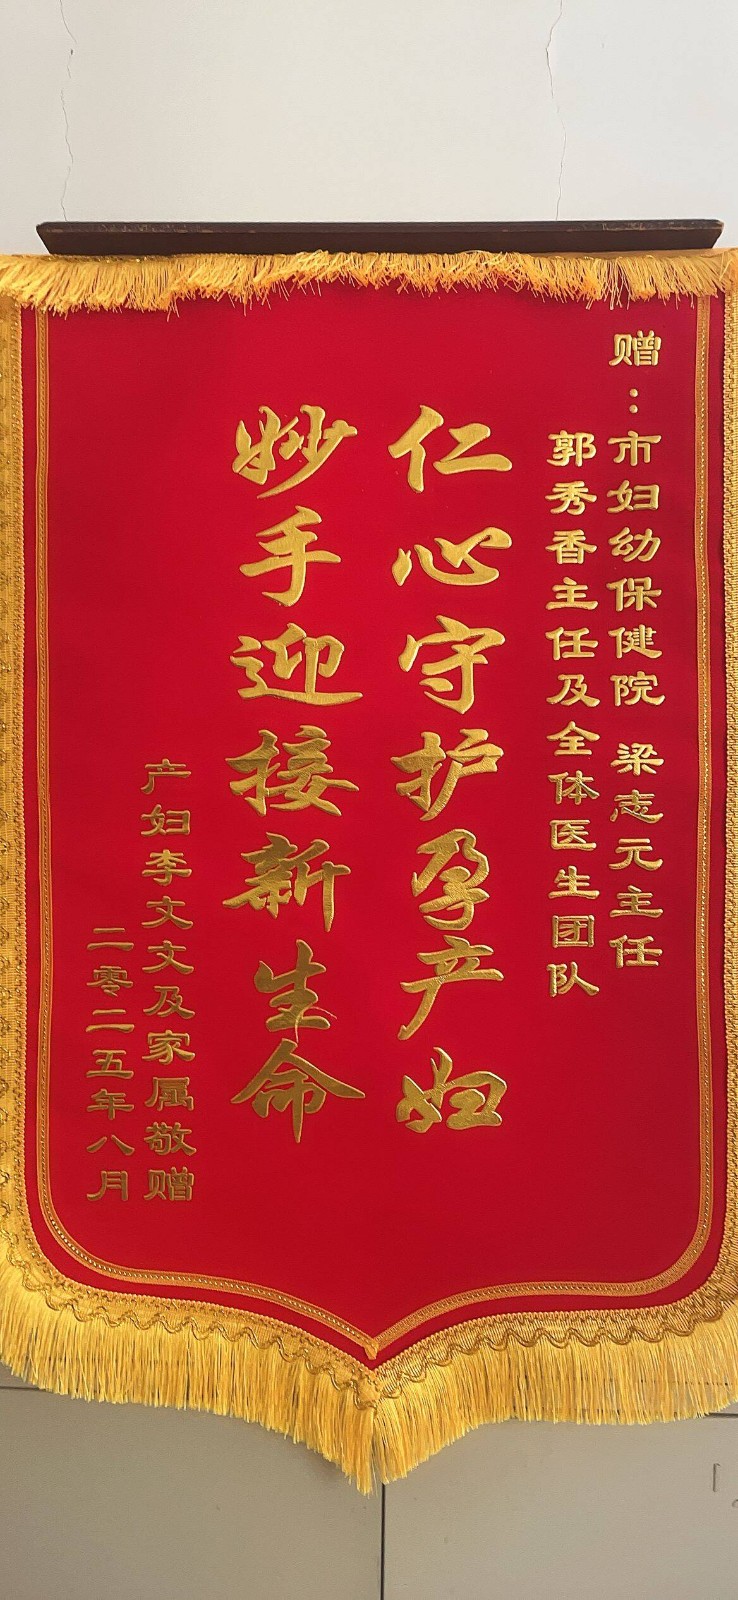 赠：市妇幼保健院 梁志元主任
郭秀香主任及全体医生团队
仁心守护孕产妇
妙手迎接新生命
产妇李文文及家属敬赠
二零二五年八月